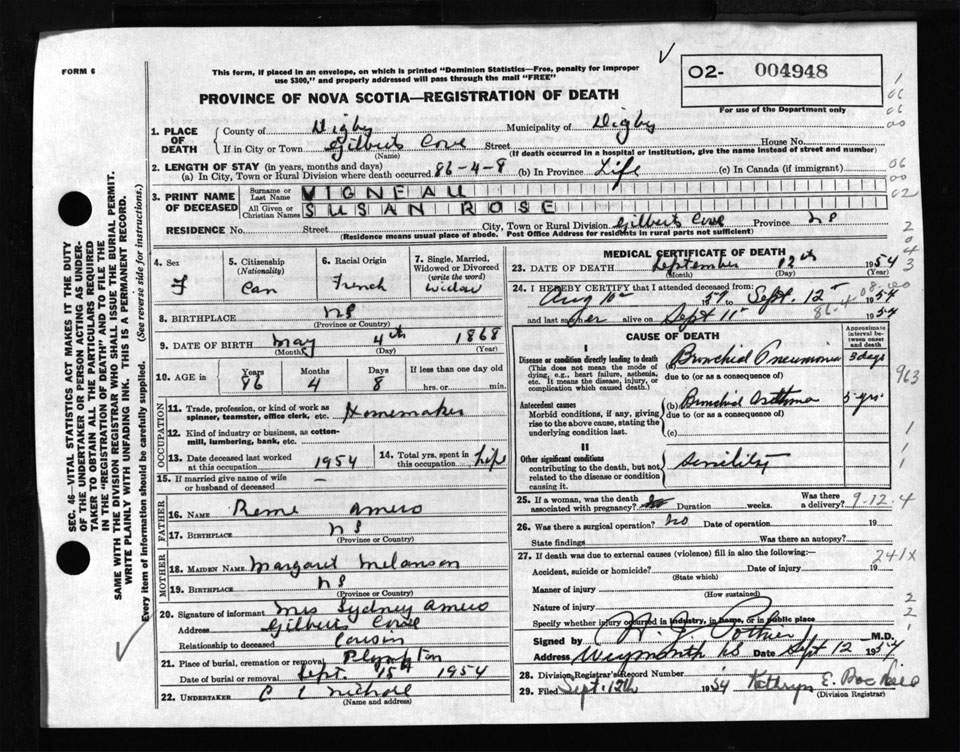 FORM 6
This form, if placed in an envelope, on which is printed "Dominion Statistics—Free, penalty for improper
use $300," and properly addressed will pass through the mail "FREE"
O2- 004948
For use of the Department only
PROVINCE OF NOVA SCOTIA—REGISTRATION OF DEATH
1. PLACE OF DEATH
County of Digby Municipality of Digby
If in City or Town Gilberts Cove Street House No.
(Name) (If death occurred in a hospital or institution, give the name instead of street and number)
2. LENGTH OF STAY (in years, months and days)
(a) In City, Town or Rural Division where death occurred 86-4-8 (b) In Province Life (c) In Canada (if immigrant)
3. PRINT NAME OF DECEASED
Surname or Last Name VIGNEAU
All Given or Christian Names SUSAN ROSE
RESIDENCE No. Street City, Town or Rural Division Gilberts Cove Province NS
(Residence means usual place of abode. Post Office Address for residents in rural parts not sufficient)
4. Sex F
5. Citizenship (Nationality) Can
6. Racial Origin French
7. Single, Married, Widowed or Divorced (write the word) Widow
8. BIRTHPLACE NS
(Province or Country)
9. DATE OF BIRTH May 4th 1868
(Month) (Day) (Year)
10. AGE in Years 86 Months 4 Days 8 If less than one day old
hrs. or min.
OCCUPATION
11. Trade, profession, or kind of work as spinner, teamster, office clerk, etc. Homemaker
12. Kind of industry or business, as cotton-mill, lumbering, bank, etc.
13. Date deceased last worked at this occupation 1954
14. Total yrs. spent in this occupation Life
15. If married give name of wife or husband of deceased —
FATHER
16. NAME Reme Amero
17. BIRTHPLACE NS
(Province or Country)
MOTHER
18. MAIDEN NAME Margaret Melanson
19. BIRTHPLACE NS
(Province or Country)
20. Signature of informant Mrs Sydney Amero
Address Gilberts Cove
Relationship to deceased Cousin
21. Place of burial, cremation or removal Plympton
Date of burial or removal Sept. 15th 1954
22. UNDERTAKER C L Nichols
(Name and address)
MEDICAL CERTIFICATE OF DEATH
23. DATE OF DEATH September 12th 1954
(Month) (Day) (Year)
24. I HEREBY CERTIFY that I attended deceased from:
Aug 10th to Sept. 12th 1954
and last saw her alive on Sept 11th 1954
CAUSE OF DEATH
Approximate interval between onset and death
I
Disease or condition directly leading to death
(This does not mean the mode of dying, e.g., heart failure, asthenia, etc. It means the disease, injury, or complication which caused death.)
Bronchial Pneumonia 3 days
due to (or as a consequence of)
Antecedent causes
Morbid conditions, if any, giving rise to the above cause, stating the underlying condition last.
(b) Bronchial Asthma 5 yrs.
due to (or as a consequence of)
(c)
II
Other significant conditions
contributing to the death, but not related to the disease or condition causing it.
Senility
25. If a woman, was the death associated with pregnancy? no Duration weeks. Was there a delivery?
9-12-4
26. Was there a surgical operation? no Date of operation 19
State findings Was there an autopsy?
27. If death was due to external causes (violence) fill in also the following:
241X
Accident, suicide or homicide? Date of injury 19
(State which)
Manner of injury
(How sustained)
Nature of injury
Specify whether injury occurred in industry, in home, or in public place
Signed by Pothier M.D.
Address Weymouth NS Date Sept 12 1954
28. Division Registrar's Record Number
29. Filed Sept. 12th 1954 Kathryn E.
(Division Registrar)
SEC. 46—VITAL STATISTICS ACT MAKES IT THE DUTY
OF THE UNDERTAKER OR PERSON ACTING AS UNDER-
TAKER TO OBTAIN ALL THE PARTICULARS REQUIRED
IN THE "REGISTRATION OF DEATH" AND TO FILE THE
SAME WITH THE DIVISION REGISTRAR WHO SHALL ISSUE THE BURIAL PERMIT.
WRITE PLAINLY WITH UNFADING INK. THIS IS A PERMANENT RECORD.
Every item of information should be carefully supplied. (See reverse side for instructions.)
963